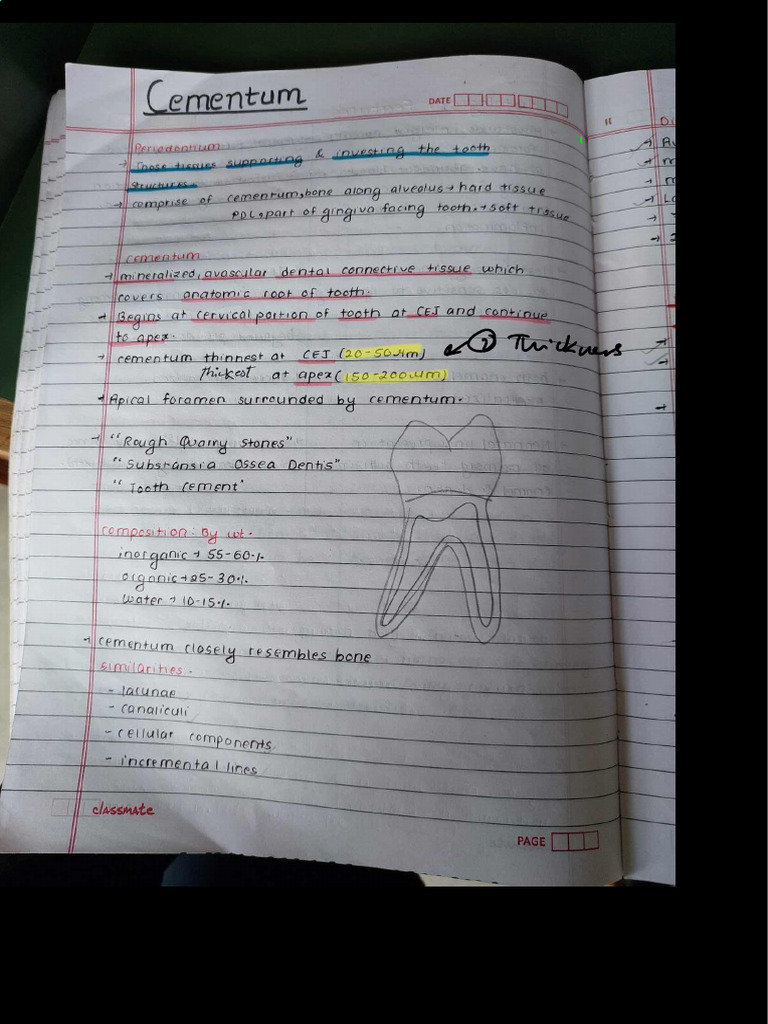 Cementum
DATE
Periodontium.
→ Those tissues supporting & investing the tooth
structures.
→ comprise of cementum, bone along alveolus → hard tissue
PDL, part of gingiva facing tooth. → soft tissue
cementum
→ mineralized, avascular dental connective tissue which
covers anatomic root of tooth.
→ Begins at cervical portion of tooth at CEJ and continue
to apex.
→ cementum thinnest at CEJ (20-50 µm) ↙ ① Thickness
thickest at apex (150-200 µm)
→ Apical foramen surrounded by cementum.
→ "Rough Quarry Stones"
"Substansia Ossea Dentis"
"Tooth cement"
composition: By wt.
inorganic → 55-60%
organic → 25-30%
water → 10-15%
→ cementum closely resembles bone
similarities.
- lacunae
- canaliculi
- cellular components
- incremental lines
classmate
PAGE